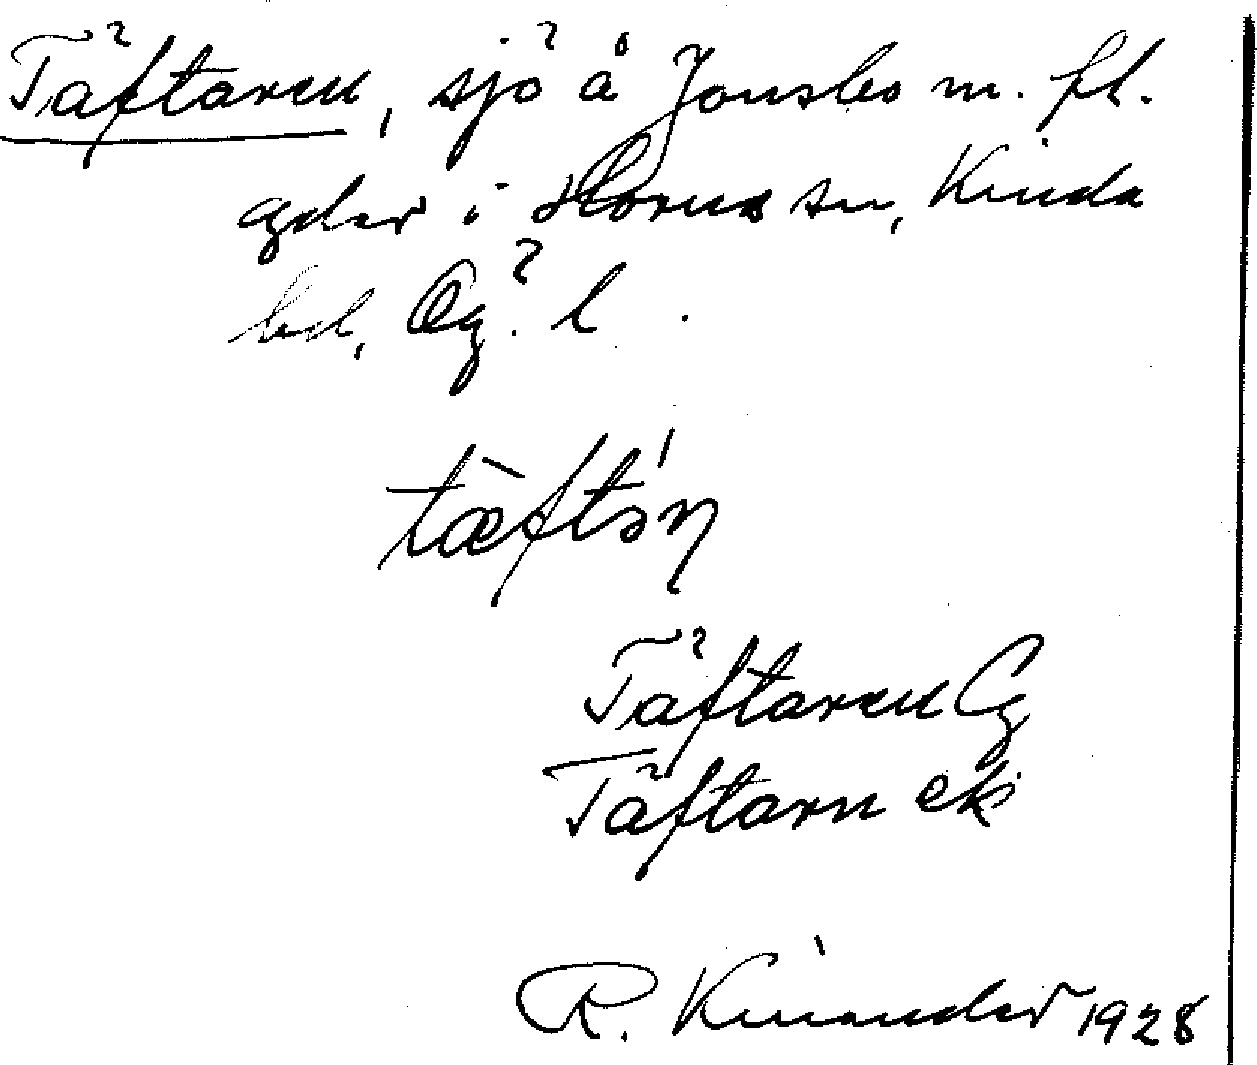 Täftaren, sjö å Jonsbo m. fl.
gder i Horns sn, Kinda
hd, Ög. l.
tæftəṇ
Täftaren Cg
Täftarn ek
R. Kinander 1928